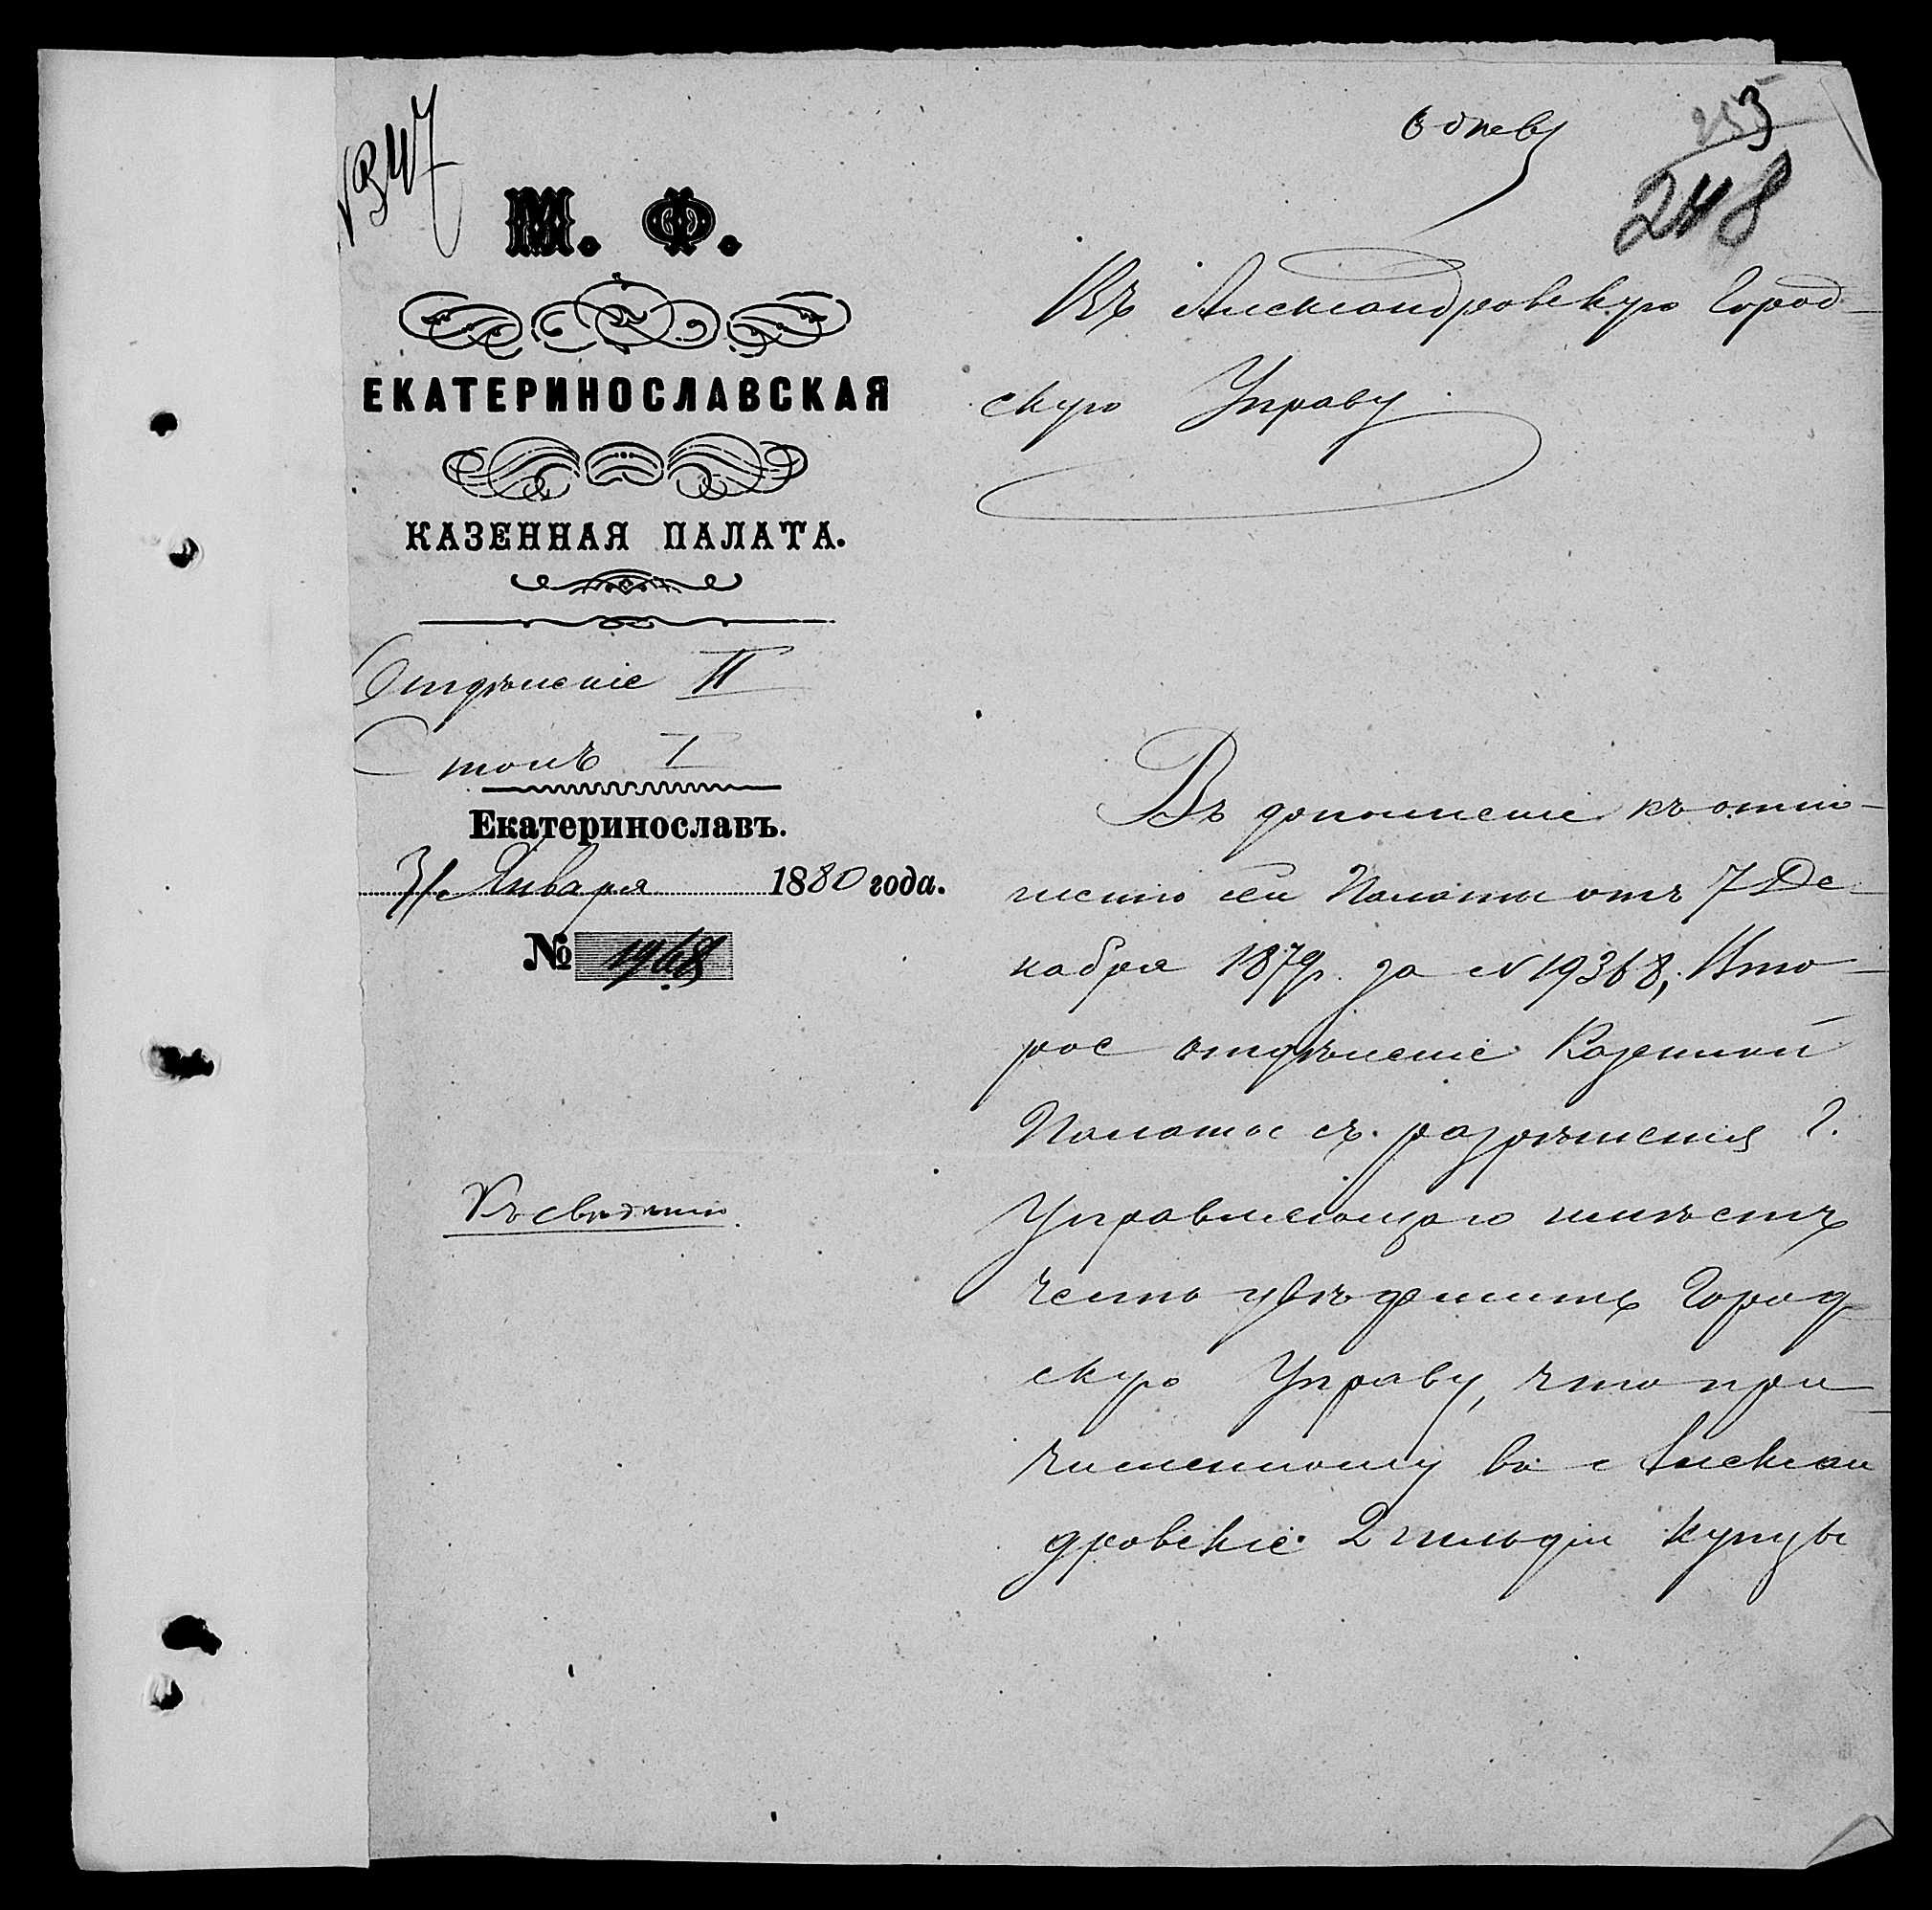 № 347
6 днев
253
248
М. Ф.
ЕКАТЕРИНОСЛАВСКАЯ
КАЗЕННАЯ ПАЛАТА.
Отдѣленіе II
Столъ I
Екатеринославъ.
31 Января 1880 года.
№ 1968
Къ свѣдѣнію.
Въ Александровскую Город-
скую Управу
Въ дополненіе къ отно-
шенію сей Палаты отъ 7 Де-
кабря 1879 г. за № 19368, Вто-
рое отдѣленіе Казенной
Палаты съ разрѣшенія Г.
Управляющаго имѣетъ
честь увѣдомить Город
скую Управу, что при-
численному въ Алексан
дровскіе 2 гильдіи купцы